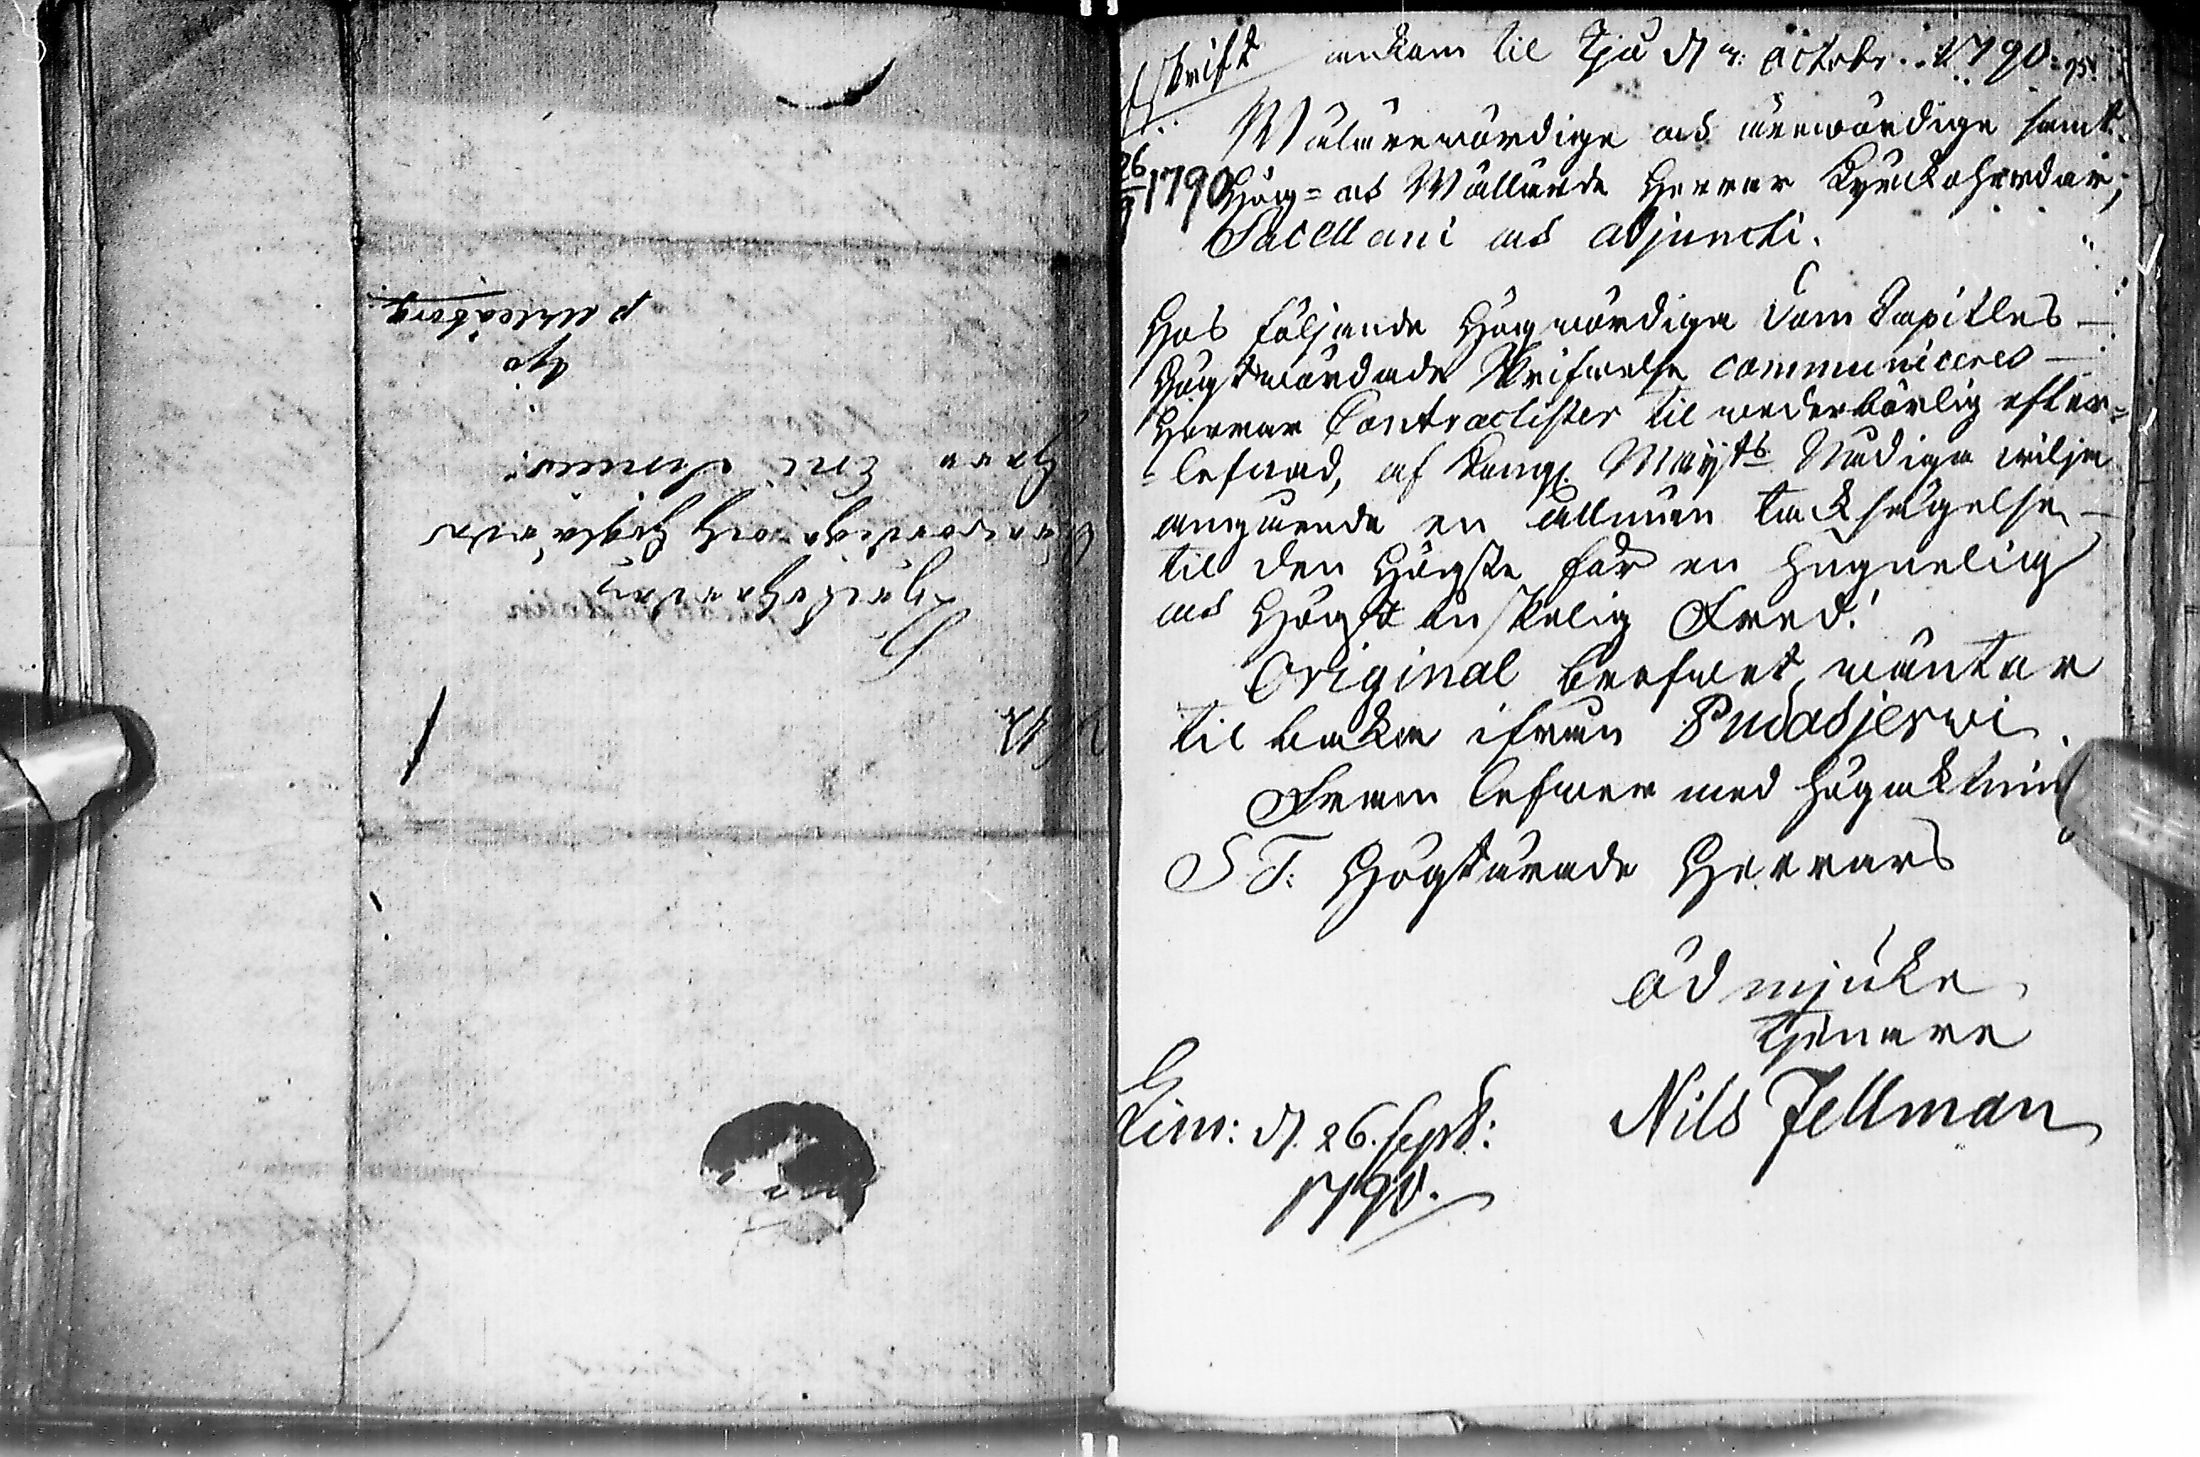 Kyrckoherden
Ärewördige och Höglärde
Herr Eric Simelius
Ijo
p Uhleåborg
Afskrift
ankom til Ijå d 4: Octobr. 1790.
26/9 1790
Wälärewördige och ärewördige samt
Hög- och Wällärde Herrar Kyrckoherdar,
Sacellani och adjuncti.
Hos följande Högwördiga Dom Capitlets
Högtwördade Skrifwelse communiceres
Herrar Contractister til wederbörlig efter=
=lefnad, af Kongl. Maÿts Nådiga wilja
angående en allmän tacksägelse
til den Högste för en hugnelig
och Högst önskelig Fred!
Original brefwet wäntar
til baka ifrån Pudasjerwi.
Framlefwer med högaktning
S. T. Högtärade Herrars
ödmjuke
tjenare
Nils Fellman
Kim: d. 26. Sept:
1790.